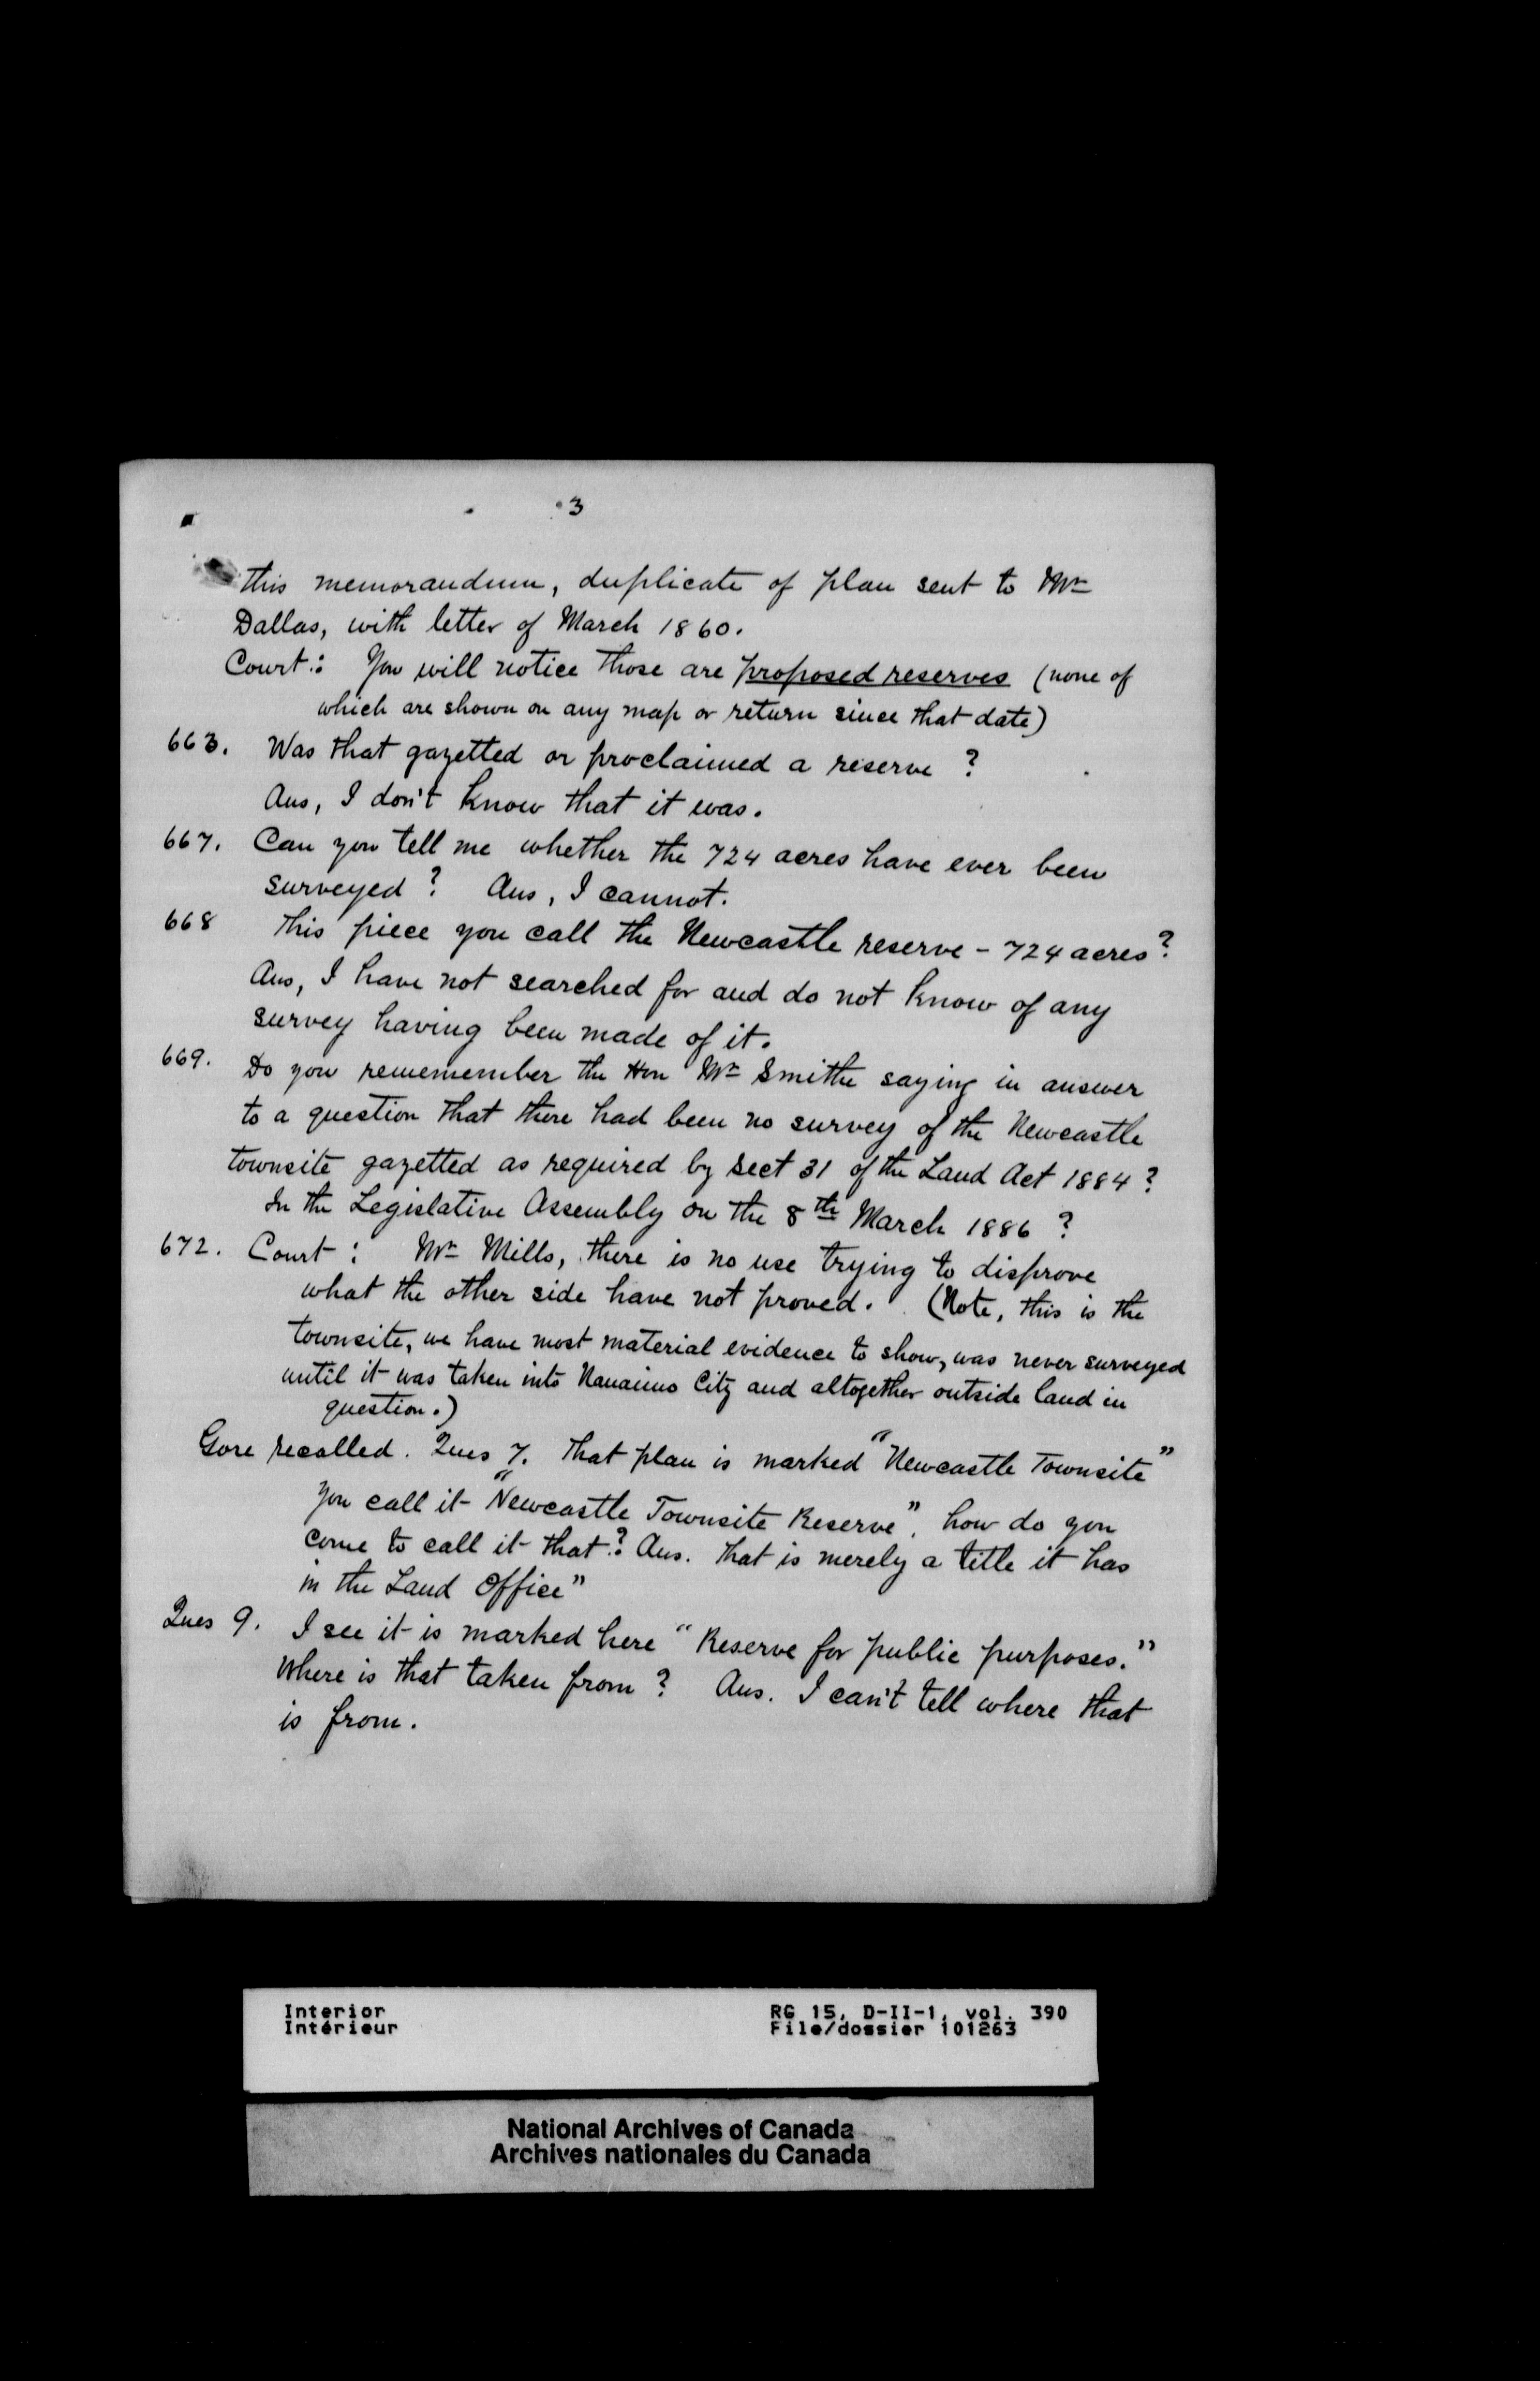 3
this memorandum, duplicate of plan sent to Mr
Dallas, with letter of March 1860.
Court: You will notice those are proposed reserves (none of
which are shown on any map or return since that date)
663. Was that gazetted or proclaimed a reserve ?
Ans, I don't know that it was.
667. Can you tell me whether the 724 acres have ever been
surveyed ? Ans, I cannot.
668 This piece you call the Newcastle reserve - 724 acres?
Ans, I have not searched for and do not know of any
survey having been made of it.
669. Do you rememember the Hon Mr Smithe saying in answer
to a question that there had been no survey of the Newcastle
townsite gazetted as required by Sect 31 of the Land Act 1884 ?
In the Legislative Assembly on the 8th March 1886 ?
672. Court : Mr Mills, there is no use trying to disprove
what the other side have not proved. (Note, this is the
townsite, we have most material evidence to show, was never surveyed
until it was taken into Nanaimo City and altogether outside land in
question.)
Gore recalled. Ques 7. That plan is marked "Newcastle Townsite"
you call it "Newcastle Townsite Reserve", how do you
come to call it that? Ans. That is merely a title it has
in the Land Office"
Ques 9. I see it is marked here "Reserve for public purposes."
Where is that taken from ? Ans. I can't tell where that
is from.
Interior RG 15, D-II-1, vol. 390
Intérieur File/dossier 101263
National Archives of Canada
Archives nationales du Canada